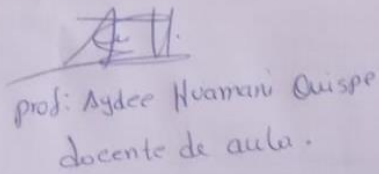 prof: Aydee Huamani Quispe
docente de aula.